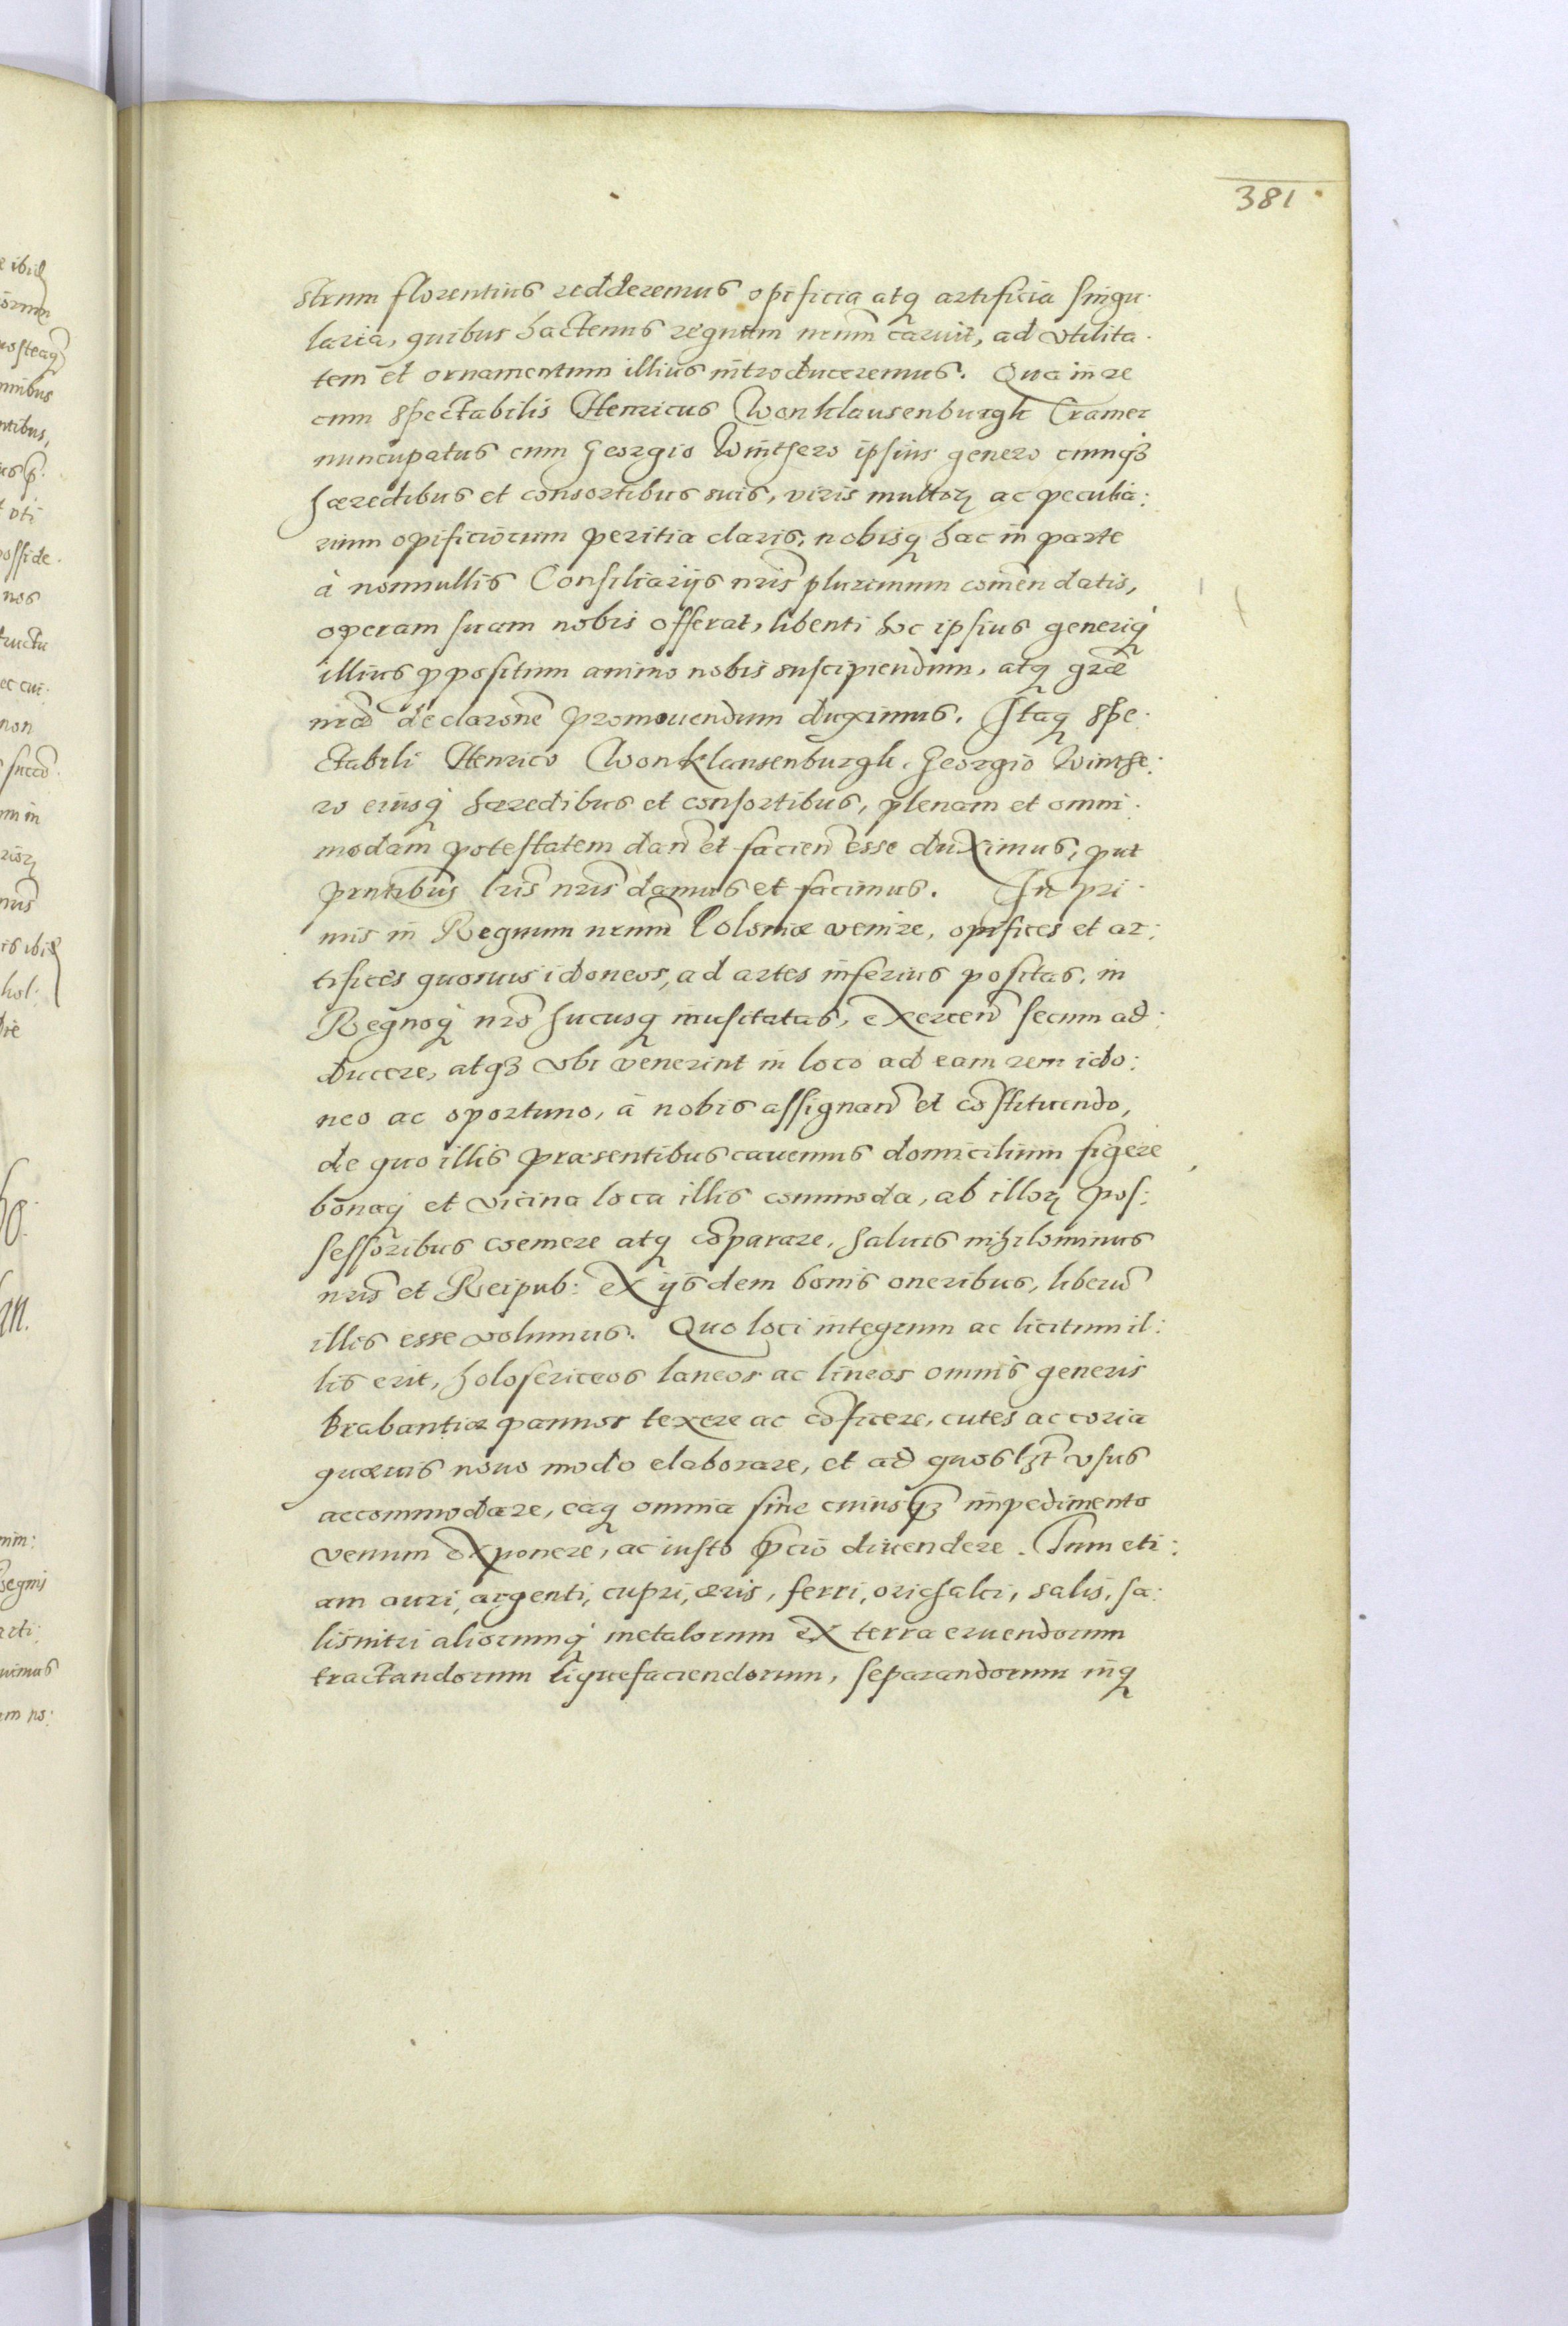 381
strum florentius redderemus opificia atq artificia singu.
laria, quibus hactenus regnum nrum caruit, ad vtilita.
tem et ornamentum illius introduceremus. Qua in re
cum spectabilis Henricus Wonklausenburgh Cramer
nuncupatus cum Georgio Winthero ipsius genero cumqȝ
hæredibus et consortibus suis, viris multorꝝ ac peculia:
rium opificiorum peritia claris, nobisq hac in parte
à nonnullis Consiliarijs nris plurimum comendatis,
operam suam nobis offerat, libenti hoc ipsius generiq
illius ꝓpositum animo nobis suscipiendum, atq græ
nræ declarone promouendum duximus. Itaq spe.
ctabili Henrico Wonklausenburgh, Georgio Winthe:
ro eiusq hæredibus et consortibus, plenam et omni.
modam potestatem dan et facien esse duximus, put
pntibus lris nris damus et facimus. In pri.
mis in Regnum nrum Poloniæ venire, opifices et ar:
tifices quosuis idoneos, ad artes inferius positas, in
Regnoq nro hucusq inusitatas, exercen secum ad:
ducere, atqȝ vbi venerint in loco ad eam rem ido:
neo ac oportuno, à nobis assignan et cōstituendo,
de quo illis præsentibus cauemus domicilium figere
bonaq et vicina loca illis commoda, ab illorꝝ pos:
sessoribus coemere atq cōparare, saluis nihilominus
nris et Reipub: ex ijsdem bonis oneribus, liberū
illis esse volumus. Quo loci integrum ac licitum il:
lis erit, holosericeos laneos ac lineos omnis generis
Brabantiæ pannos texere ac cōficere, cutes ac coria
quæuis nouo modo elaborare, et ad quoslȝt vsus
accommodare, eaq omnia sine cuiusqȝ impedimento
venum exponere, ac iusto p̄cio diuendere. Tum eti:
am auri, argenti, cupri, æris, ferri, orichalci, salis, sa:
lisnitri aliorumq metalorum ex terra eruendorum
tractandorum liquefaciendorum, separandorum inq